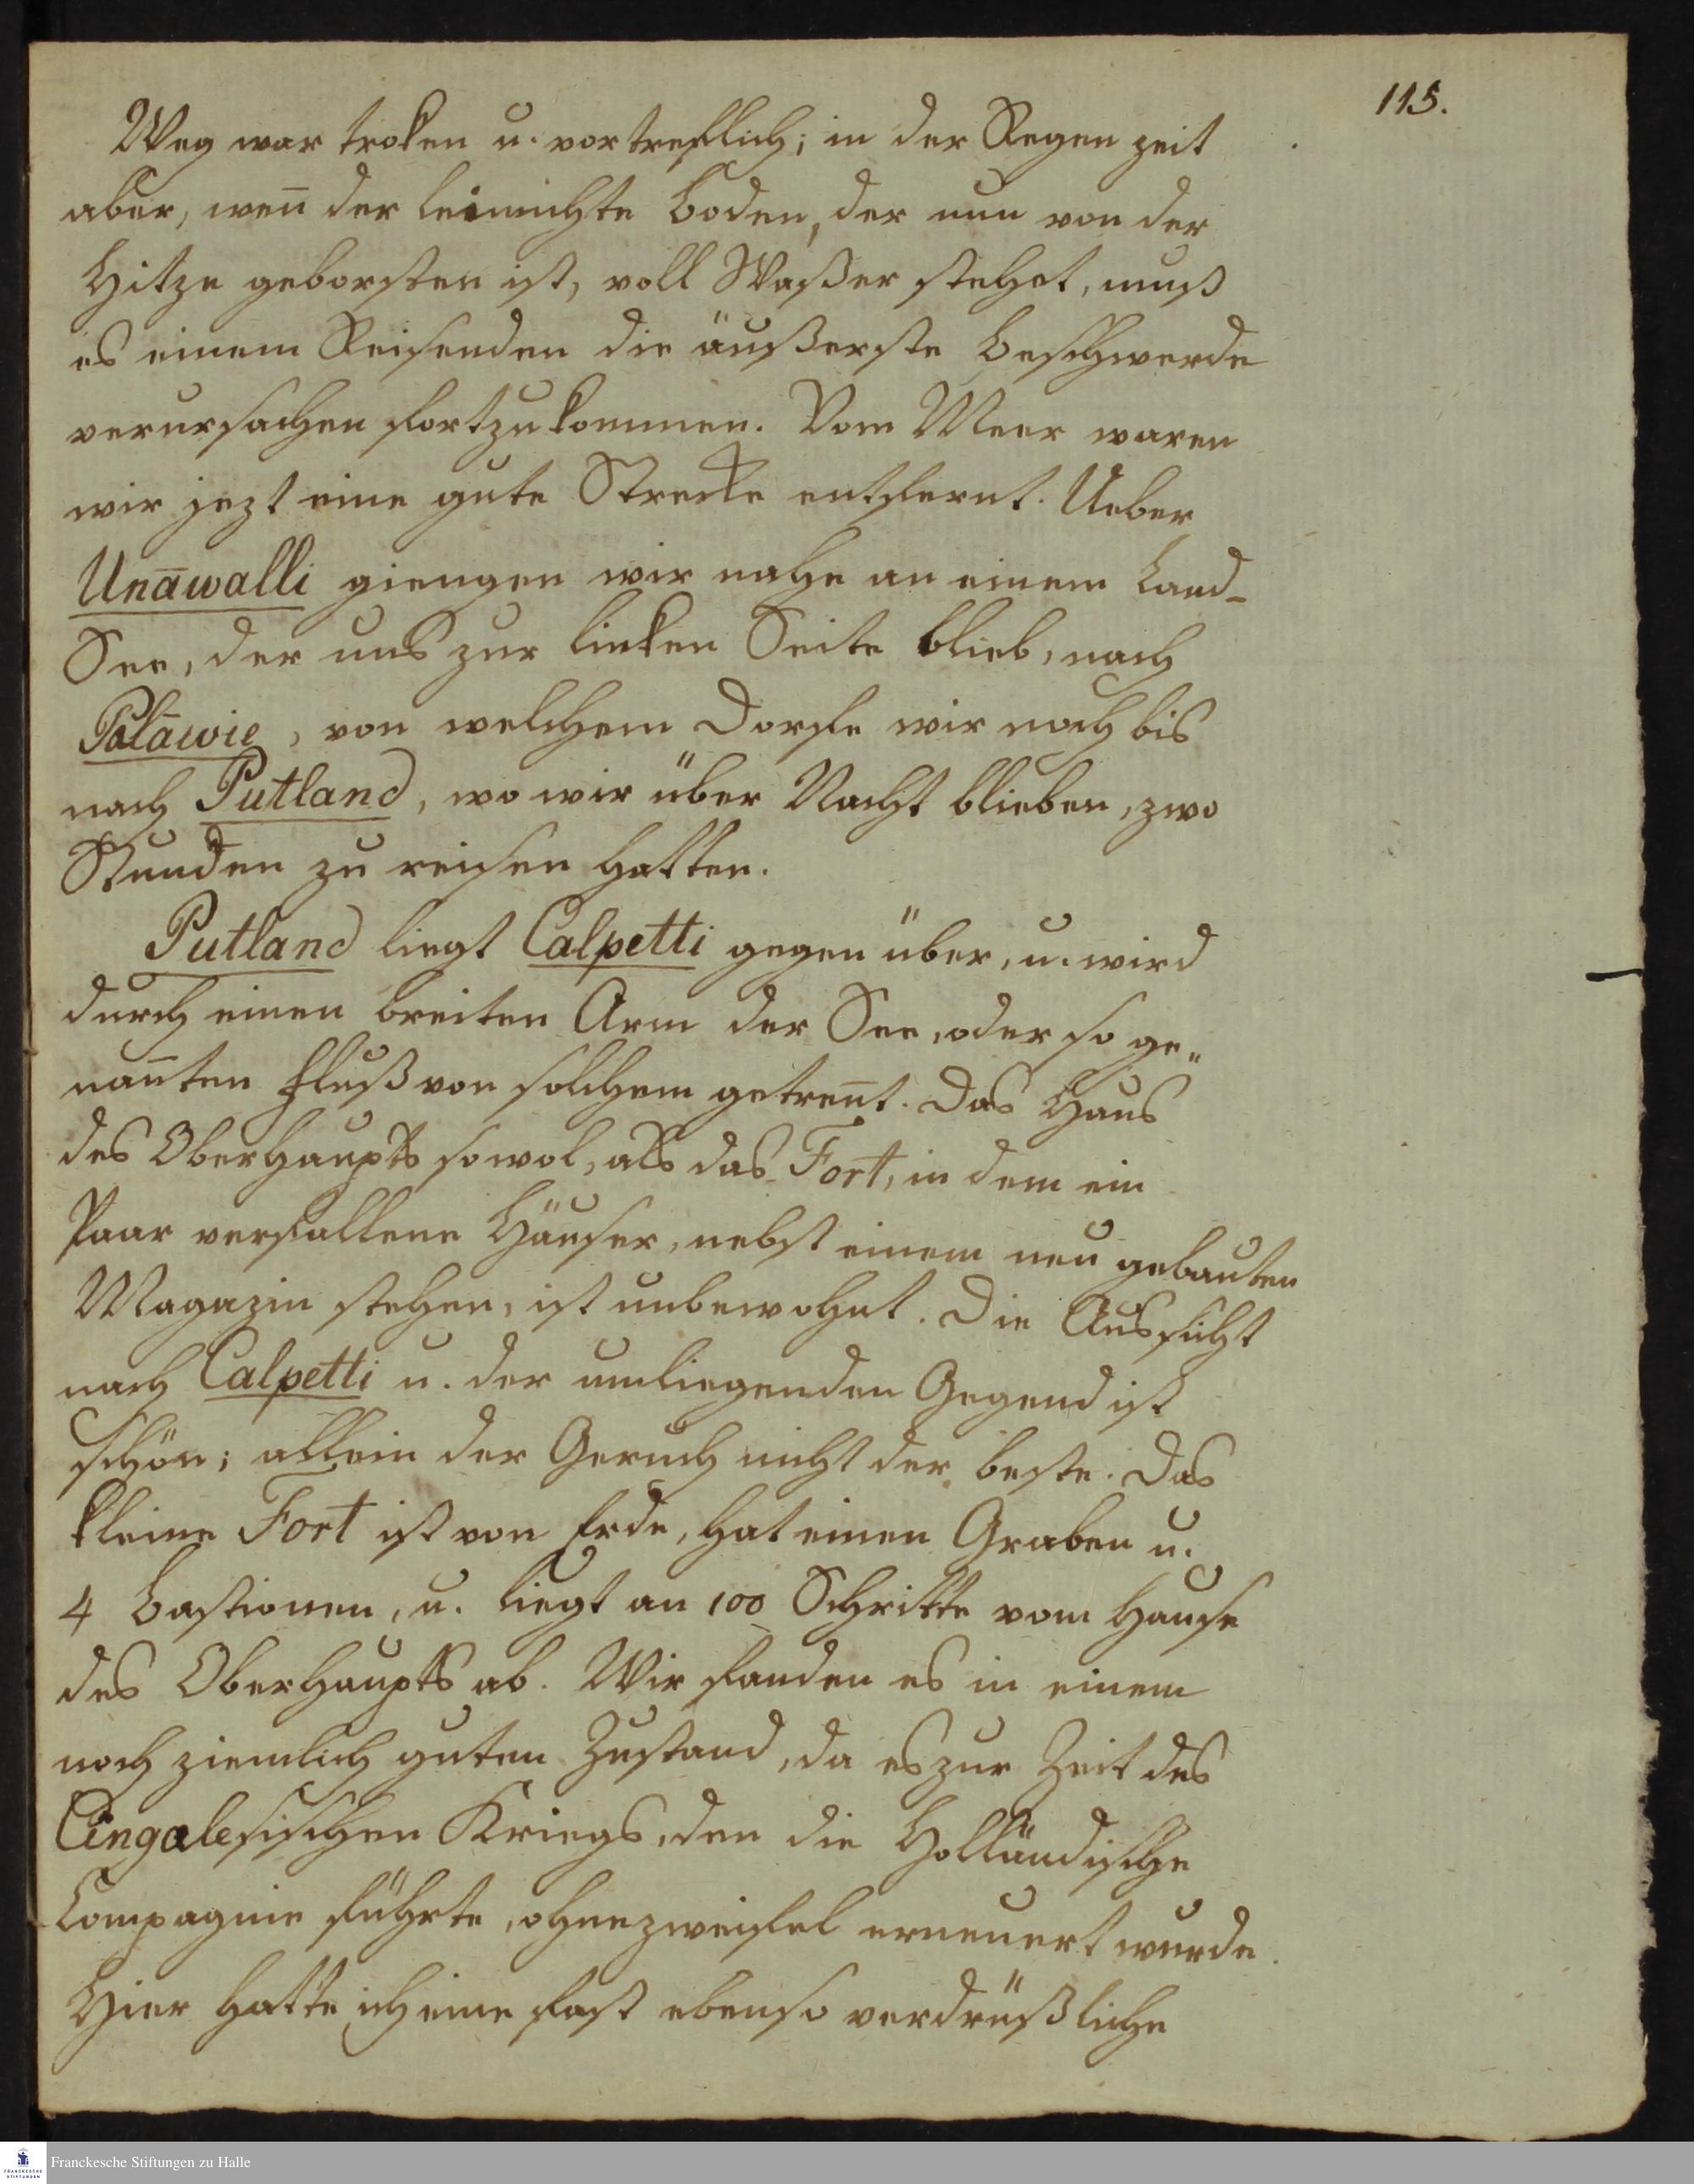 115.
Weg war troken u. vortreflich; in der Regen zeit
aber, wen̄ der leimichte Boden, der nun von der
Hitze geborsten ist, voll Waßer stehet, muß
es einem Reisenden die äußerste Beschwerde
verursachen fortzukommen. Vom Meer waren
wir jezt eine gute Strecke entfernt. Ueber
Unāwalli giengen wir nahe an einem Land-
See, der uns zur linken Seite blieb, nach
Polāwie, von welchem Dorfe wir noch bis
nach Putland, wo wir über Nacht blieben, zwo
Stunden zu reisen hatten.
Putland liegt Calpetti gegen über, u. wird
durch einen breiten Arm der See, oder so ge„
nan̄ten Fluß von solchem getren̄t. Das Haus
des Oberhaupts sowol, als das Fort, in dem ein
Paar verfallene Häuser, nebst einem neu gebauten
Magazin stehen, ist unbewohnt. Die Aussicht
nach Calpetti u. der umliegenden Gegend ist
schön; allein der Geruch nicht der beste. Das
kleine Fort ist von Erde, hat einen Graben u.
4 Bastionen, u. liegt an 100 Schritte vom Hause
des Oberhaupts ab. Wir fanden es in einem
noch ziemlich guten Zustand, da es zur Zeit des
Cingalesischen Kriegs, den die Holländische
Compagnie führte, ohnezweifel erneuert wurde.
Hier hatte ich eine fast ebenso verdrüßliche
Franckesche Stiftungen zu Halle